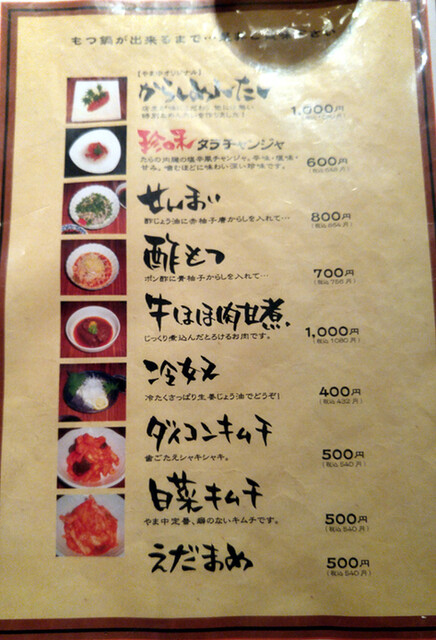 もつ鍋が出来るまで…
【やま中オリジナル】
からしめんたい
1,000円
珍味 タラチャンジャ
たらの内臓の塩辛風チャンジャ。辛味・塩味・
甘み。噛むほどに味わい深い珍味です。
600円
(税込 648 円)
せんまい
酢じょう油に赤柚子唐からしを入れて…
800円
(税込 864 円)
酢もつ
ポン酢に青柚子からしを入れて…
700円
(税込 756 円)
牛ほほ肉甘煮
じっくり煮込んだとろけるお肉です。
1,000円
(税込 1080 円)
冷奴
冷たくさっぱり生姜じょう油でどうぞ!
400円
(税込 432 円)
ダイコンキムチ
歯ごたえシャキシャキ。
500円
(税込 540 円)
白菜キムチ
やま中定番、癖のないキムチです。
500円
(税込 540 円)
えだまめ
500円
(税込 540 円)